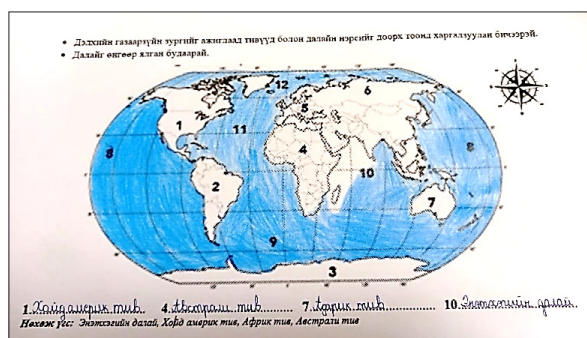 • Дэлхийн газарзүйн зургийг ажиглаад тивүүд болон далайн нэрсийг доорх тоонд харгалзуулан бичээрэй.
• Далайг өнгөөр ялган будаарай.
12
6
5
1
11
8
4
8
10
2
7
9
3
1. Хойд америк тив. 4. Австрали тив 7. Африк тив 10. Энэтхэгийн далай.
Нөхөх үгс: Энэтхэгийн далай, Хойд америк тив, Африк тив, Австрали тив